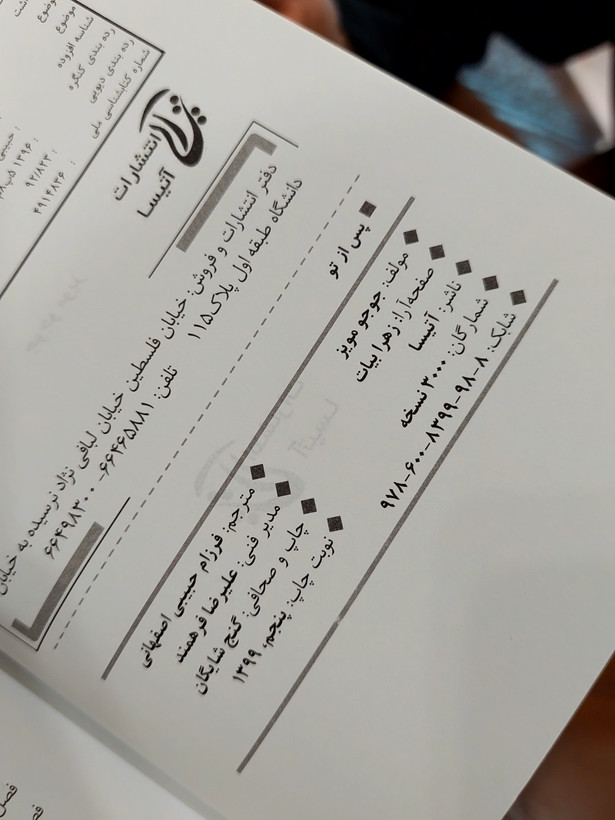 موضوع
شناسه افزوده
رده بندی کنگره
رده بندی دیویی
شماره کتابشناسی ملی
: ۹۲/۸۲۳
: ۴۹۱۴۸۲۶
انتشارات
آتیسا
دفتر انتشارات و فروش: خیابان فلسطین خیابان لبافی نژاد نرسیده به خیابان
دانشگاه طبقه اول پلاک ۱۱۵
تلفن: ۶۶۴۶۵۸۸۱- ۶۶۴۹۸۳۰۰
پس از تو
مولف: جوجو مویز
صفحه‌آرا: زهرا بیات
ناشر: آتیسا
شمارگان: ۲۰۰۰ نسخه
شابک: ۸-۹۸-۸۳۹۹-۶۰۰-۹۷۸
مترجم: فرزام حبیبی اصفهانی
مدیر فنی: علیرضا فرهمند
چاپ و صحافی: گنج شایگان
نوبت چاپ: پنجم، ۱۳۹۹